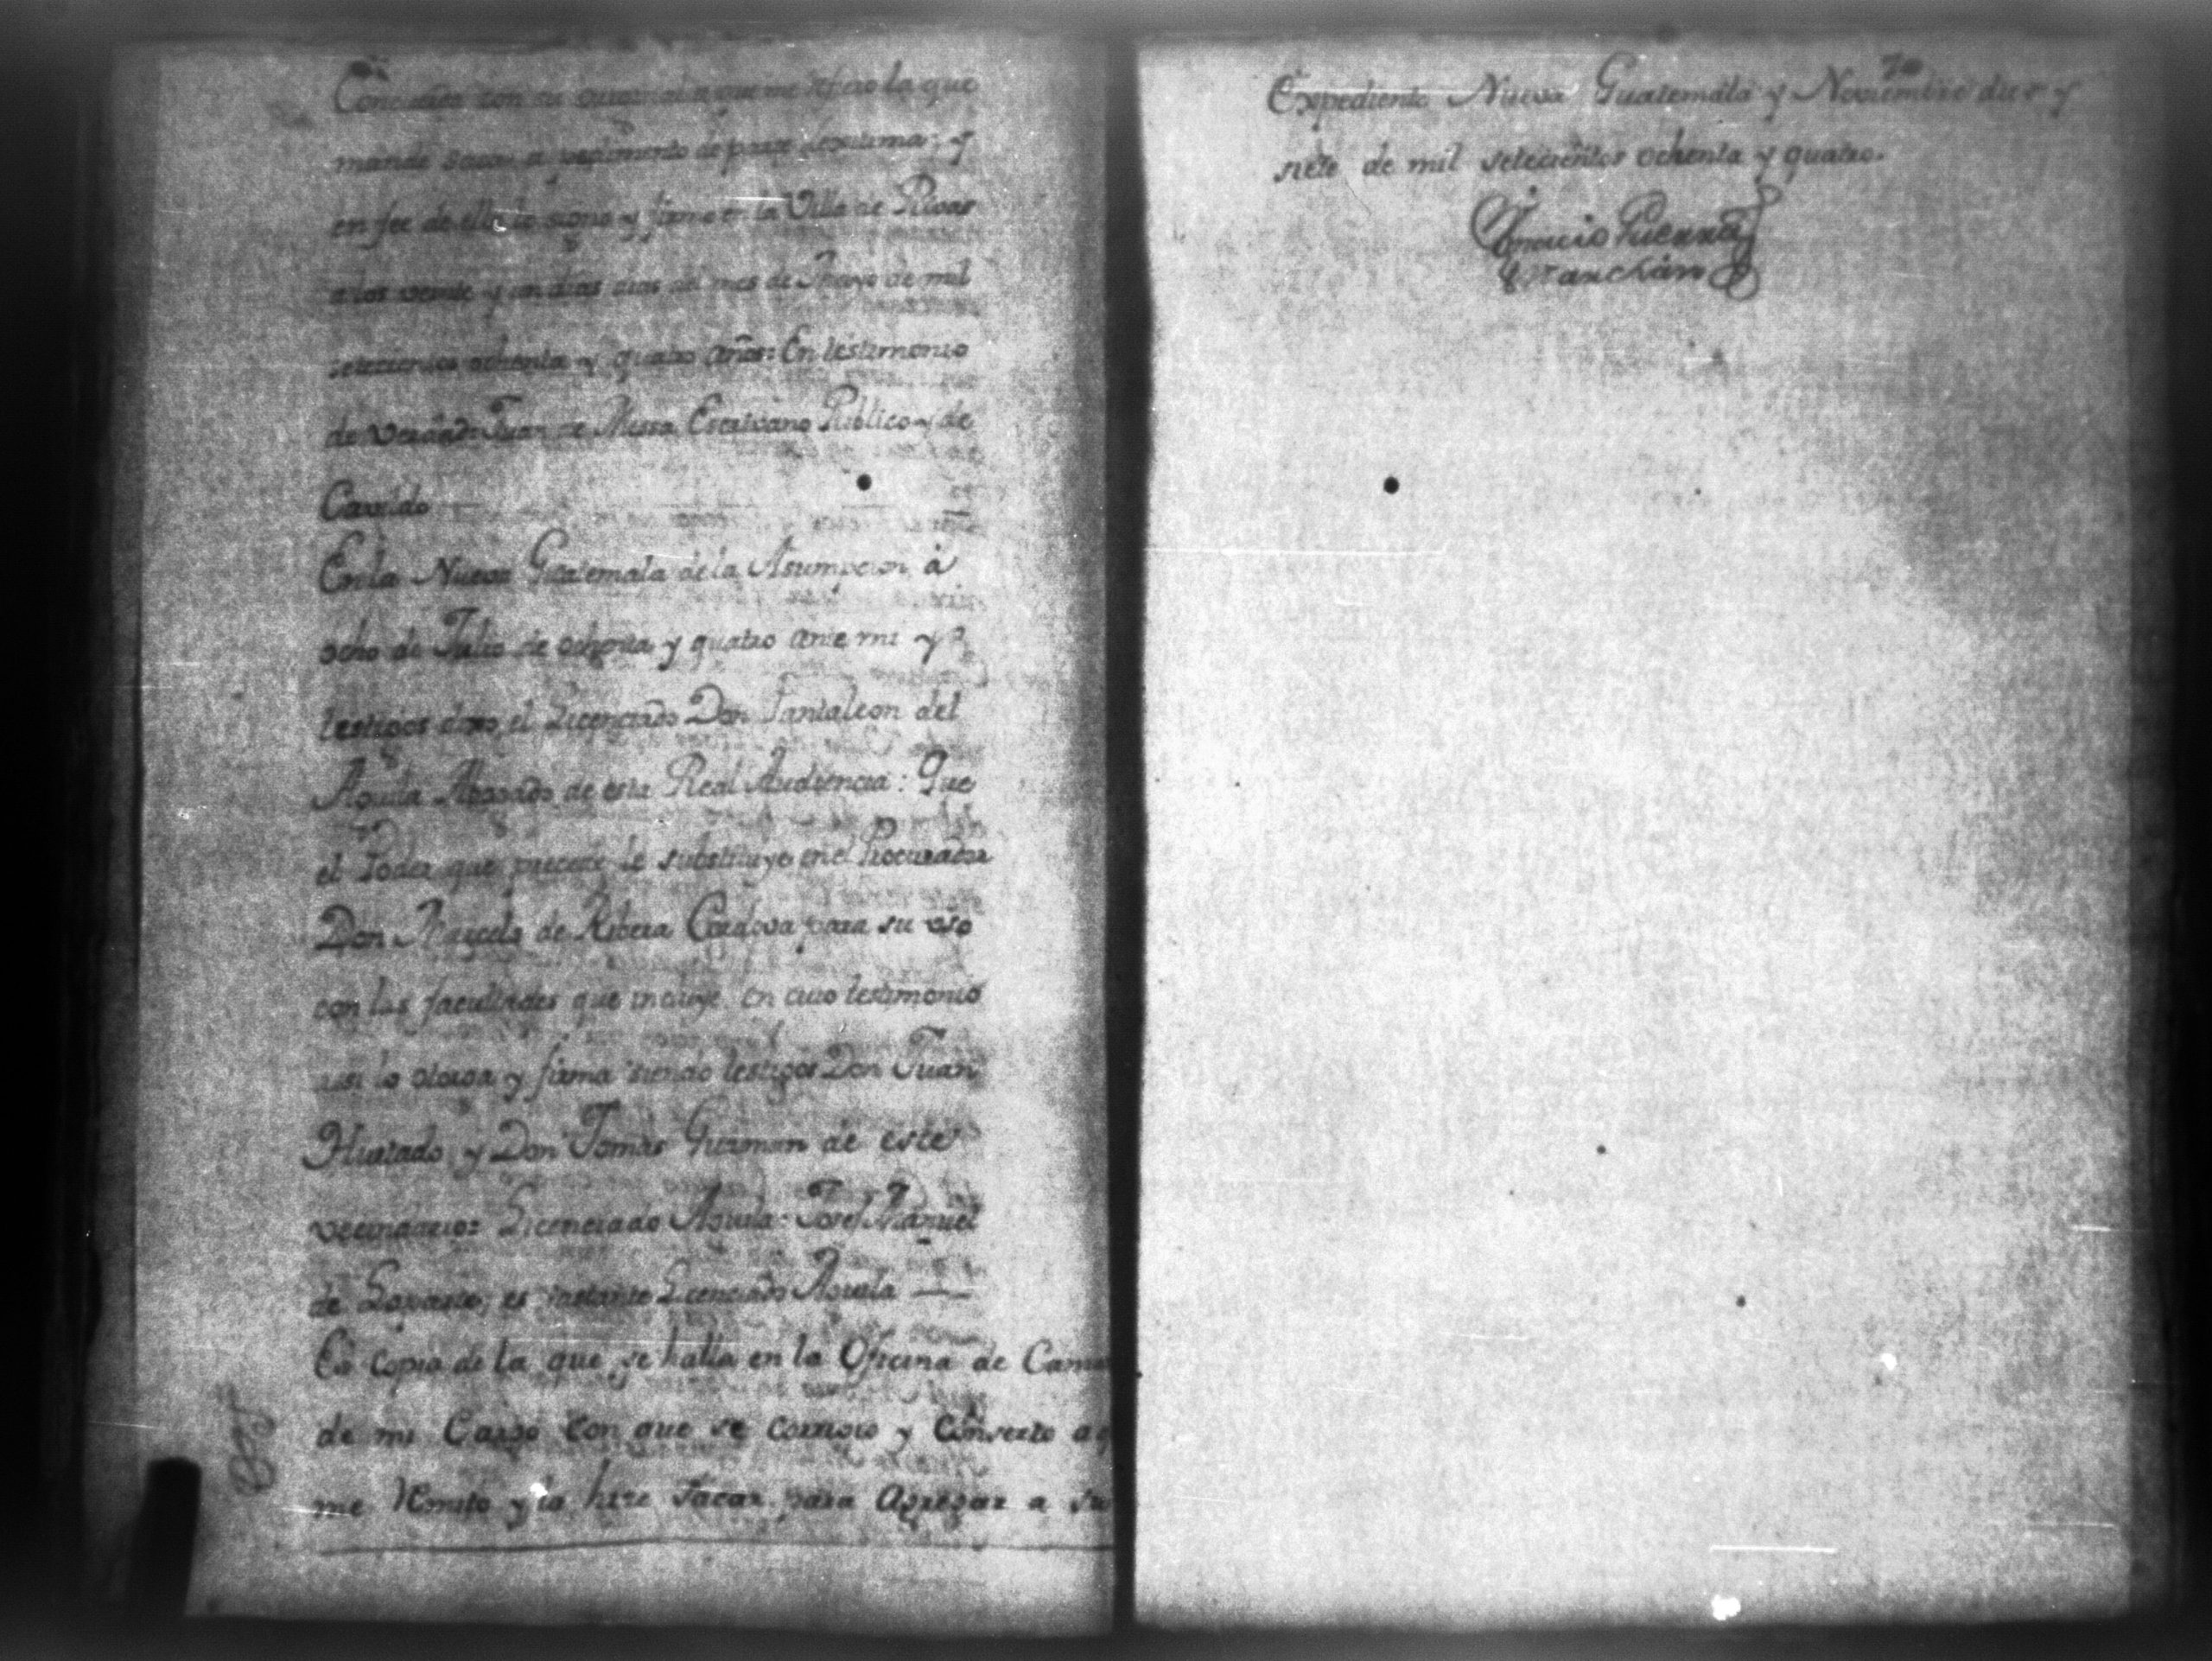 Concuerda con su original a que me refiero la que
mande sacar a pedimento de parte lexitima; y
en fee de ello lo signo y firmo en la Villa de Rivas
a los veinte y un dias del mes de Mayo de mil
setecientos ochenta y quatro años: En testimonio
de verdad: Juan de Messa Escrivano Publico y de
Cavildo
En la Nueva Guatemala de la Asumpcion à
ocho de Julio de ochenta y quatro ante mi y
testigos dixo el Licenciado Don Pantaleon del
Aguila Abogado de esta Real Audiencia: Que
el Poder que precede le substituye en el Procurador
Don Marcelo de Ribera Cordova para su uso
con las facultades que incluye. En cuio testimonio
asi lo otorga y firma siendo testigos Don Juan
Hurtado, y Don Tomas Guzman de este
vecindario: Licenciado Aguila: Josef Manuel
de Laparte, es bastante Licenciado Aguila
Es copia de la que se halla en la Oficina de Camara
de mi Cargo con que se corrigio y Conserto a q
me Remito y la hize sacar para Agregar a su
Expediente Nueva Guatemala y Noviembre diez y
siete de mil setecientos ochenta y quatro.
Ignacio Guerra y
Marchán